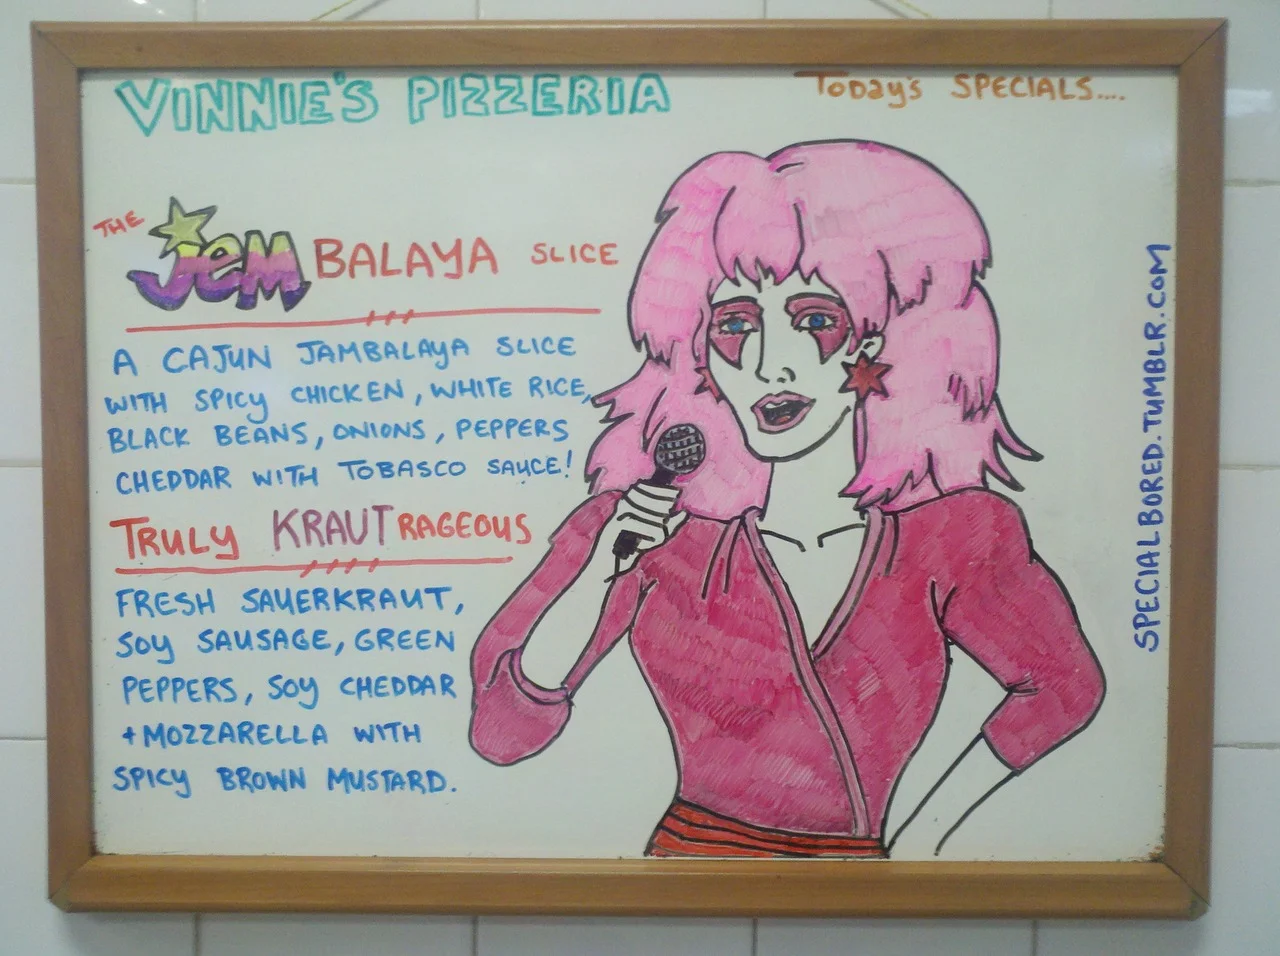 VINNIE'S PIZZERIA
TODAY'S SPECIALS....
THE JEM BALAYA SLICE
A CAJUN JAMBALAYA SLICE
WITH SPICY CHICKEN, WHITE RICE,
BLACK BEANS, ONIONS, PEPPERS
CHEDDAR WITH TOBASCO SAUCE!
TRULY KRAUTRAGEOUS
FRESH SAUERKRAUT,
SOY SAUSAGE, GREEN
PEPPERS, SOY CHEDDAR
+ MOZZARELLA WITH
SPICY BROWN MUSTARD.
SPECIALBORED.TUMBLR.COM